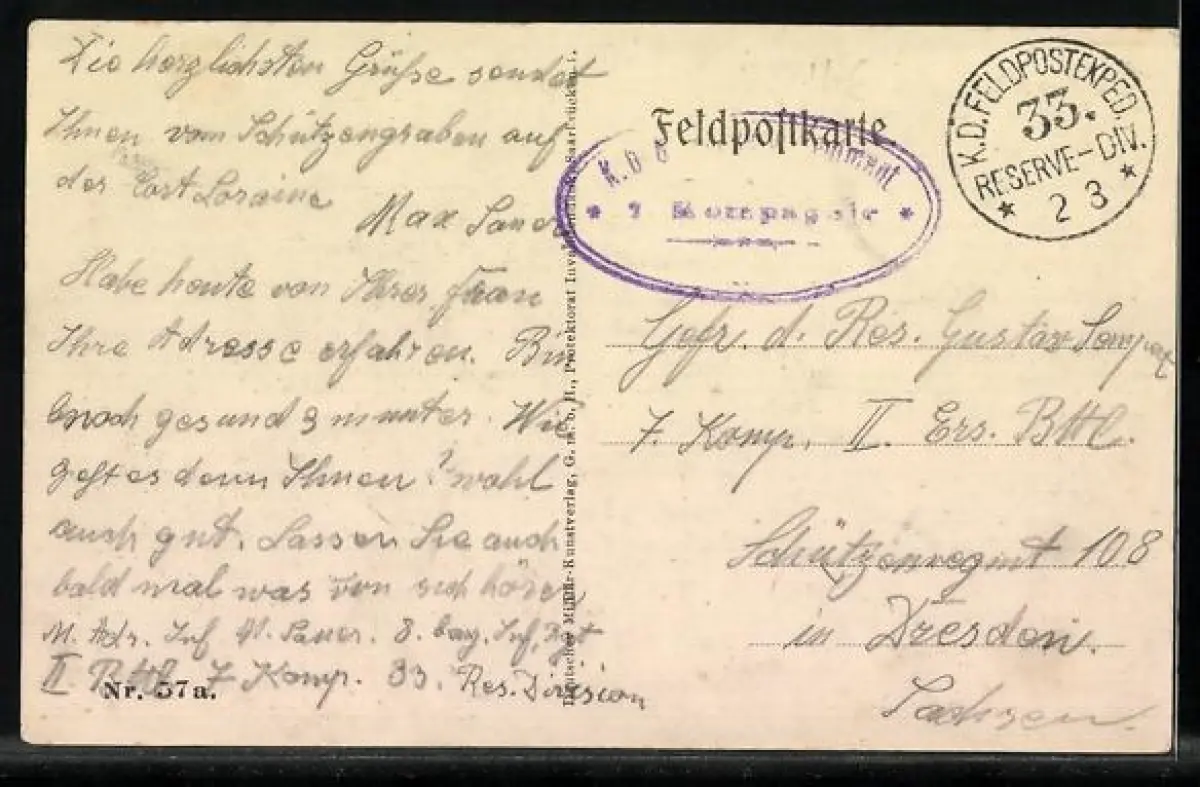 Die herzlichsten Grüße sendet
Ihnen vom Schützengraben auf
der Cort Loraine
Max
Habe heute von Ihrer Frau
Ihre Adresse erfahren. Bin
noch gesund & munter. Wie
geht es denn Ihnen? wohl
auch gut. Lassen Sie auch
bald mal was von sich hören
M. Adr. Inf M. Sauer. 8. bay. Inf. Rgt
II Battl 7 Komp. 33. Res. Division
Nr. 57a.
Deutscher Militär-Kunstverlag, G. m. b. H., Protektorat Saarbrücken 1.
Feldpostkarte
K. B. 8
Kompagnie
K.D.FELDPOSTEXPED.
33.
RESERVE-DIV.
* 2 3 *
Gefr. d. Res. Gustav
7. Komp. II. Ers. Bttl.
Schützenregmt 108
in Dresden.
Sachsen.